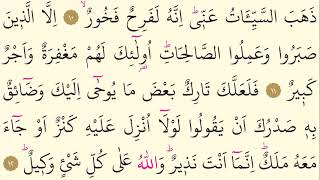 ذَهَبَ السَّيِّـَٔاتُ عَنّ۪يۜ اِنَّهُ لَفَرِحٌ فَخُورٌۙ ﴿١٠﴾ اِلَّا الَّذ۪ينَ
صَبَرُوا وَعَمِلُوا الصَّالِحَاتِۜ اُو۬لٰٓئِكَ لَهُمْ مَغْفِرَةٌ وَاَجْرٌ
كَب۪يرٌ ﴿١١﴾ فَلَعَلَّكَ تَارِكٌ بَعْضَ مَا يُوحٰٓى اِلَيْكَ وَضَٓائِقٌ
بِه۪ صَدْرُكَ اَنْ يَقُولُوا لَوْلَٓا اُنْزِلَ عَلَيْهِ كَنْزٌ اَوْ جَٓاءَ
مَعَهُ مَلَكٌۜ اِنَّمَٓا اَنْتَ نَذ۪يرٌۜ وَاللّٰهُ عَلٰى كُلِّ شَيْءٍ وَك۪يلٌۜ ﴿١٢﴾